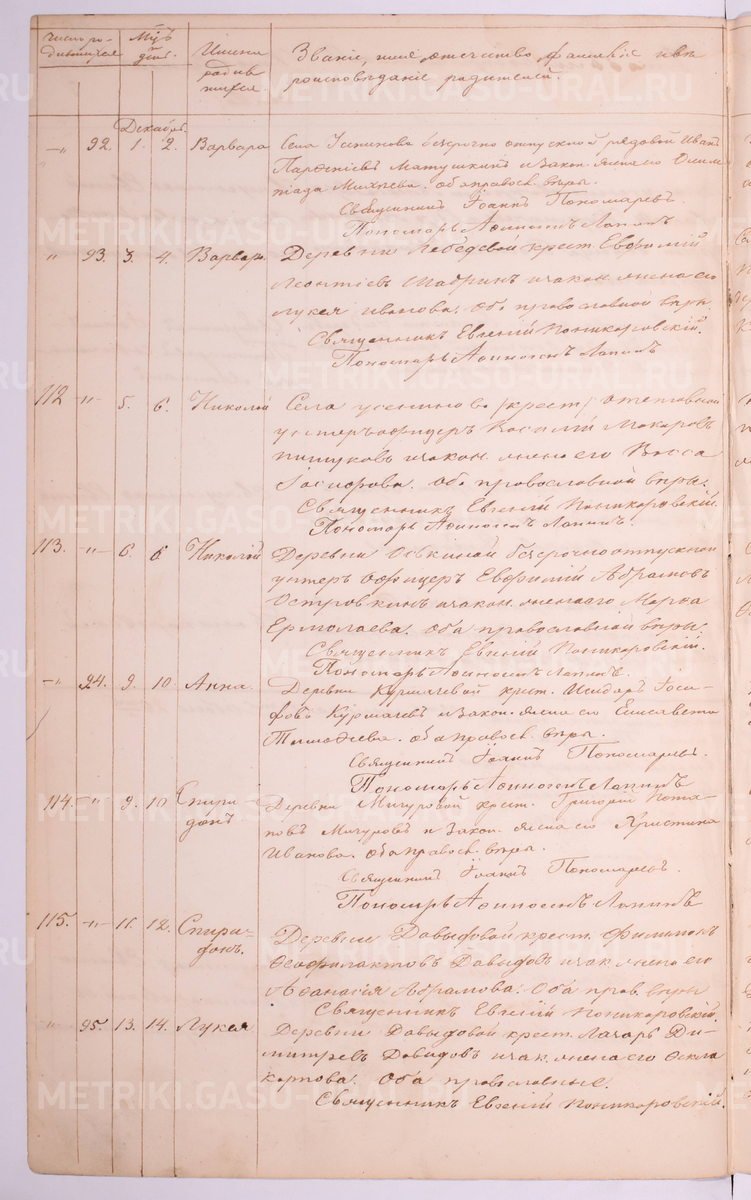 Число ро- Мѣ
дившихся дни.
Имена
родив
шихся
Званіе, имя отечество фамиліе и вѣ
роисповѣданіе родителей.
Декабрь.
-"- 92. 1. 2. Варвара Села Усенинова безсрочно отпускной рядовой Иванъ
Парѳеніевъ Матушкинъ и закон. жена его Олим
піада Михѣева. оба правосл. вѣры.
Священникъ Іоаннъ Пономаревъ.
Пономарь Аѳиногенъ Лапинъ
" 93. 3. 4. Варвар. Деревни Лебедевой крест. Евфимій
Леонтіевъ Шабринъ и закон. жена его
Лукея Иванова. Оба православной вѣры.
Священникъ Евгеній Поникаровскій.
Пономарь Аѳиногенъ Лапинъ
112 -"- 5. 6. Николай Села Усенинова (крест.) отставной
унтеръ офицеръ Василій Макаровъ
и закон. жена его Васса
Іосифова. Оба православной вѣры.
Священникъ Евгеній Поникаровскій.
Пономарь Аѳиногенъ Лапинъ.
113. -"- 6. 6. Николай Деревни Оськиной безсрочноотпускной
унтеръ офицеръ Евфимій Абрамовъ
Островкинъ и закон. жена его Марѳа
Ермолаева. Оба православной вѣры.
Священникъ Евгеній Поникаровскій.
Пономарь Аѳиногенъ Лапинъ.
-"- 94. 9. 10. Анна. Деревни Курмачевой крест. Исидоръ Іоси-
фовъ Курмачевъ и закон. жена его Елисавета
Тимоѳеева. оба правосл. вѣры.
Священникъ Іоаннъ Пономаревъ.
Пономарь Аѳиногенъ Лапинъ
114. -"- 9. 10. Спири-
донъ Деревни Мичуровой крест. Григорій Пота-
повъ Мичуровъ и закон. жена его Христина
Иванова. Оба правосл. вѣры.
Священникъ Іоаннъ Пономаревъ.
Пономарь Аѳиногенъ Лапинъ
115. -"- 11. 12. Спири-
донъ. Деревни Давыдовой крест. Филимонъ
Ѳеофилактовъ Давыдовъ и зак. жена его
Аѳанасія Абрамова. Оба прав. вѣры
Священникъ Евгеній Поникаровскій.
" 95. 13. 14. Лукея Деревни Давыдовой крест. Лазарь Ди-
митріевъ Давыдовъ и зак. жена его Ѳекла
Карпова. Оба православные.
Священникъ Евгеній Поникаровскій.
METRIKI.GASO-URAL.RU